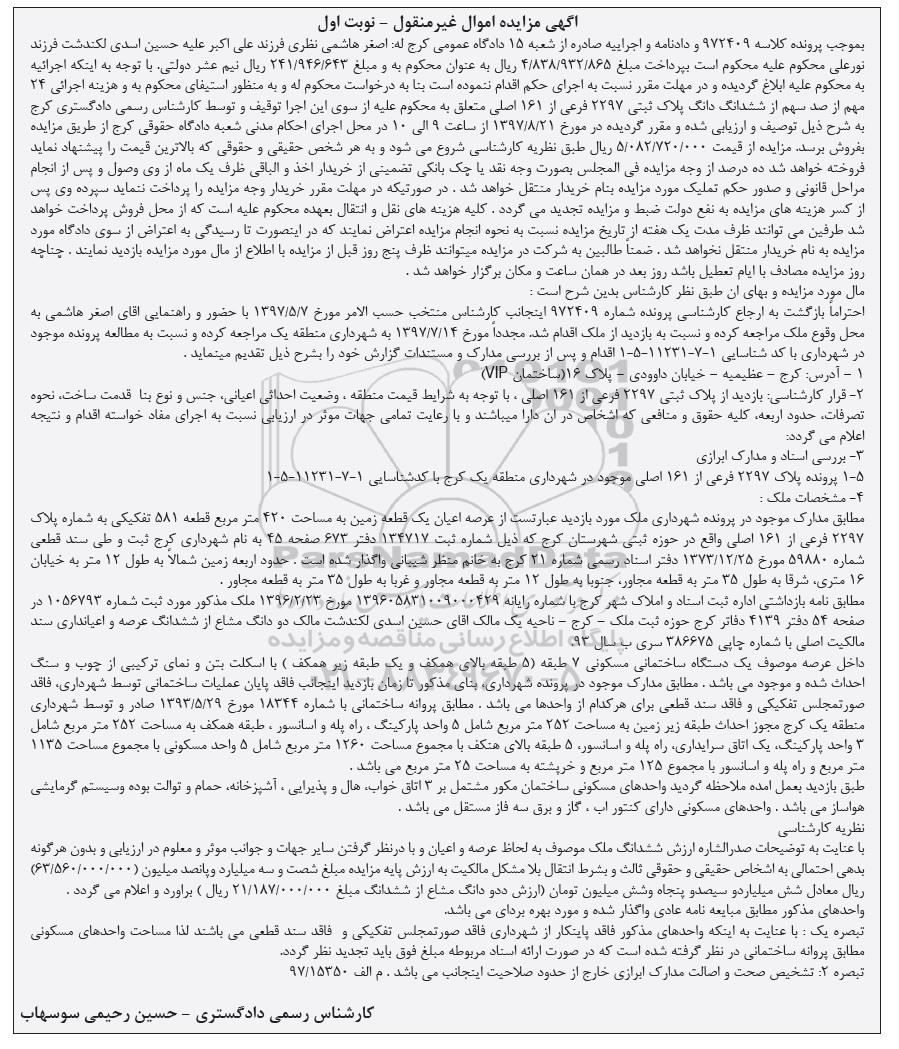 آگهی مزایده اموال غیرمنقول - نوبت اول
بموجب پرونده کلاسه ۹۷۲۴۰۹ و دادنامه و اجراییه صادره از شعبه ۱۵ دادگاه عمومی کرج له: اصغر هاشمی نظری فرزند علی اکبر علیه حسین اسدی لکندشت فرزند
نورعلی محکوم علیه محکوم است بپرداخت مبلغ ۴/۸۳۸/۹۳۲/۸۶۵ ریال به عنوان محکوم به و مبلغ ۲۴۱/۹۴۶/۶۴۳ ریال نیم عشر دولتی. با توجه به اینکه اجرائیه
به محکوم علیه ابلاغ گردیده و در مهلت مقرر نسبت به اجرای حکم اقدام ننموده است بنا به درخواست محکوم له و به منظور استیفای محکوم به و هزینه اجرائی ۲۴
مهم از صد سهم از ششدانگ دانگ پلاک ثبتی ۲۲۹۷ فرعی از ۱۶۱ اصلی متعلق به محکوم علیه از سوی این اجرا توقیف و توسط کارشناس رسمی دادگستری کرج
به شرح ذیل توصیف و ارزیابی شده و مقرر گردیده در مورخ ۱۳۹۷/۸/۲۱ از ساعت ۹ الی ۱۰ در محل اجرای احکام مدنی شعبه دادگاه حقوقی کرج از طریق مزایده
بفروش برسد. مزایده از قیمت ۵/۰۸۲/۷۲۰/۰۰۰ ریال طبق نظریه کارشناسی شروع می شود و به هر شخص حقیقی و حقوقی که بالاترین قیمت را پیشنهاد نماید
فروخته خواهد شد ده درصد از وجه مزایده فی المجلس بصورت وجه نقد یا چک بانکی تضمینی از خریدار اخذ و الباقی ظرف یک ماه از وی وصول و پس از انجام
مراحل قانونی و صدور حکم تملیک مورد مزایده بنام خریدار منتقل خواهد شد . در صورتیکه در مهلت مقرر خریدار وجه مزایده را پرداخت ننماید سپرده وی پس
از کسر هزینه های مزایده به نفع دولت ضبط و مزایده تجدید می گردد . کلیه هزینه های نقل و انتقال بعهده محکوم علیه است که از محل فروش پرداخت خواهد
شد طرفین می توانند ظرف مدت یک هفته از تاریخ مزایده نسبت به نحوه انجام مزایده اعتراض نمایند که در اینصورت تا رسیدگی به اعتراض از سوی دادگاه مورد
مزایده به نام خریدار منتقل نخواهد شد . ضمناً طالبین به شرکت در مزایده میتوانند ظرف پنج روز قبل از مزایده با اطلاع از مال مورد مزایده بازدید نمایند . چناچه
روز مزایده مصادف با ایام تعطیل باشد روز بعد در همان ساعت و مکان برگزار خواهد شد .
مال مورد مزایده و بهای ان طبق نظر کارشناس بدین شرح است :
احتراماً بازگشت به ارجاع کارشناسی پرونده شماره ۹۷۲۴۰۹ اینجانب کارشناس منتخب حسب الامر مورخ ۱۳۹۷/۵/۷ با حضور و راهنمایی اقای اصغر هاشمی به
محل وقوع ملک مراجعه کرده و نسبت به بازدید از ملک اقدام شد. مجدداً مورخ ۱۳۹۷/۷/۱۴ به شهرداری منطقه یک مراجعه کرده و نسبت به مطالعه پرونده موجود
در شهرداری با کد شناسایی ۱-۷-۱۱۲۳۱-۵-۱ اقدام و پس از بررسی مدارک و مستندات گزارش خود را بشرح ذیل تقدیم مینماید .
۱ - آدرس: کرج - عظیمیه - خیابان داوودی - پلاک ۱۶(ساختمان VIP)
۲- قرار کارشناسی: بازدید از پلاک ثبتی ۲۲۹۷ فرعی از ۱۶۱ اصلی ، با توجه به شرایط قیمت منطقه ، وضعیت احداثی اعیانی، جنس و نوع بنا قدمت ساخت، نحوه
تصرفات، حدود اربعه، کلیه حقوق و منافعی که اشخاص در ان دارا میباشند و با رعایت تمامی جهات موثر در ارزیابی نسبت به اجرای مفاد خواسته اقدام و نتیجه
اعلام می گردد:
۳- بررسی اسناد و مدارک ابرازی
۱-۵ پرونده پلاک ۲۲۹۷ فرعی از ۱۶۱ اصلی موجود در شهرداری منطقه یک کرج با کدشناسایی ۱-۷-۱۱۲۳۱-۵-۱
۴- مشخصات ملک :
مطابق مدارک موجود در پرونده شهرداری ملک مورد بازدید عبارتست از عرصه اعیان یک قطعه زمین به مساحت ۴۲۰ متر مربع قطعه ۵۸۱ تفکیکی به شماره پلاک
۲۲۹۷ فرعی از ۱۶۱ اصلی واقع در حوزه ثبتی شهرستان کرج که ذیل شماره ثبت ۱۳۴۷۱۷ دفتر ۶۷۳ صفحه ۴۵ به نام شهرداری کرج ثبت و طی سند قطعی
شماره ۵۹۸۸۰ مورخ ۱۳۷۳/۱۲/۲۵ دفتر اسناد رسمی شماره ۲۱ کرج به خانم منظر شیبانی واگذار شده است . حدود اربعه زمین شمالاً به طول ۱۲ متر به خیابان
۱۶ متری، شرقا به طول ۳۵ متر به قطعه مجاور، جنوبا به طول ۱۲ متر به قطعه مجاور و غربا به طول ۳۵ متر به قطعه مجاور .
مطابق نامه بازداشتی اداره ثبت اسناد و املاک شهر کرج با شماره رایانه ۱۳۹۶۰۵۸۳۱۰۰۹۰۰۰۴۲۹ مورخ ۱۳۹۶/۲/۲۳ ملک مذکور مورد ثبت شماره ۱۰۵۶۷۹۳ در
صفحه ۵۴ دفتر ۴۱۳۹ دفاتر کرج حوزه ثبت ملک - کرج - ناحیه یک مالک اقای حسین اسدی لکندشت مالک دو دانگ مشاع از ششدانگ عرصه و اعیانداری سند
مالکیت اصلی با شماره چاپی ۳۸۶۶۷۵ سری ب سال ۹۳.
داخل عرصه موصوف یک دستگاه ساختمانی مسکونی ۷ طبقه (۵ طبقه بالای همکف و یک طبقه زیر همکف ) با اسکلت بتن و نمای ترکیبی از چوب و سنگ
احداث شده و موجود می باشد . مطابق مدارک موجود در پرونده شهرداری، بنای مذکور تا زمان بازدید اینجانب فاقد پایان عملیات ساختمانی توسط شهرداری، فاقد
صورتمجلس تفکیکی و فاقد سند قطعی برای هرکدام از واحدها می باشد . مطابق پروانه ساختمانی با شماره ۱۸۳۴۴ مورخ ۱۳۹۳/۵/۲۹ صادر و توسط شهرداری
منطقه یک کرج مجوز احداث طبقه زیر زمین به مساحت ۲۵۲ متر مربع شامل ۵ واحد پارکینگ ، راه پله و اسانسور ، طبقه همکف به مساحت ۲۵۲ متر مربع شامل
۳ واحد پارکینگ، یک اتاق سرایداری، راه پله و اسانسور، ۵ طبقه بالای هتکف با مجموع مساحت ۱۲۶۰ متر مربع شامل ۵ واحد مسکونی با مجموع مساحت ۱۱۳۵
متر مربع و راه پله و اسانسور با مجموع ۱۲۵ متر مربع و خرپشته به مساحت ۲۵ متر مربع می باشد .
طبق بازدید بعمل امده ملاحظه گردید واحدهای مسکونی ساختمان مکور مشتمل بر ۳ اتاق خواب، هال و پذیرایی ، آشپزخانه، حمام و توالت بوده وسیستم گرمایشی
هواساز می باشد . واحدهای مسکونی دارای کنتور اب ، گاز و برق سه فاز مستقل می باشد .
نظریه کارشناسی
با عنایت به توضیحات صدرالشاره ارزش ششدانگ ملک موصوف به لحاظ عرصه و اعیان و با درنظر گرفتن سایر جهات و جوانب موثر و معلوم در ارزیابی و بدون هرگونه
بدهی احتمالی به اشخاص حقیقی و حقوقی ثالث و بشرط انتقال بلا مشکل مالکیت به ارزش پایه مزایده مبلغ شصت و سه میلیارد وپانصد میلیون (۶۳/۵۶۰/۰۰۰/۰۰۰)
ریال معادل شش میلیاردو سیصدو پنجاه وشش میلیون تومان (ارزش ددو دانگ مشاع از ششدانگ مبلغ ۲۱/۱۸۷/۰۰۰/۰۰۰ ریال ) براورد و اعلام می گردد .
واحدهای مذکور مطابق مبایعه نامه عادی واگذار شده و مورد بهره بردای می باشد.
تبصره یک : با عنایت به اینکه واحدهای مذکور فاقد پاینکار از شهرداری فاقد صورتمجلس تفکیکی و فاقد سند قطعی می باشند لذا مساحت واحدهای مسکونی
مطابق پروانه ساختمانی در نظر گرفته شده است که در صورت ارائه اسناد مربوطه مبلغ فوق باید تجدید نظر گردد.
تبصره ۲: تشخیص صحت و اصالت مدارک ابرازی خارج از حدود صلاحیت اینجانب می باشد . م الف ۹۷/۱۵۳۵۰
کارشناس رسمی دادگستری - حسین رحیمی سوسهاب